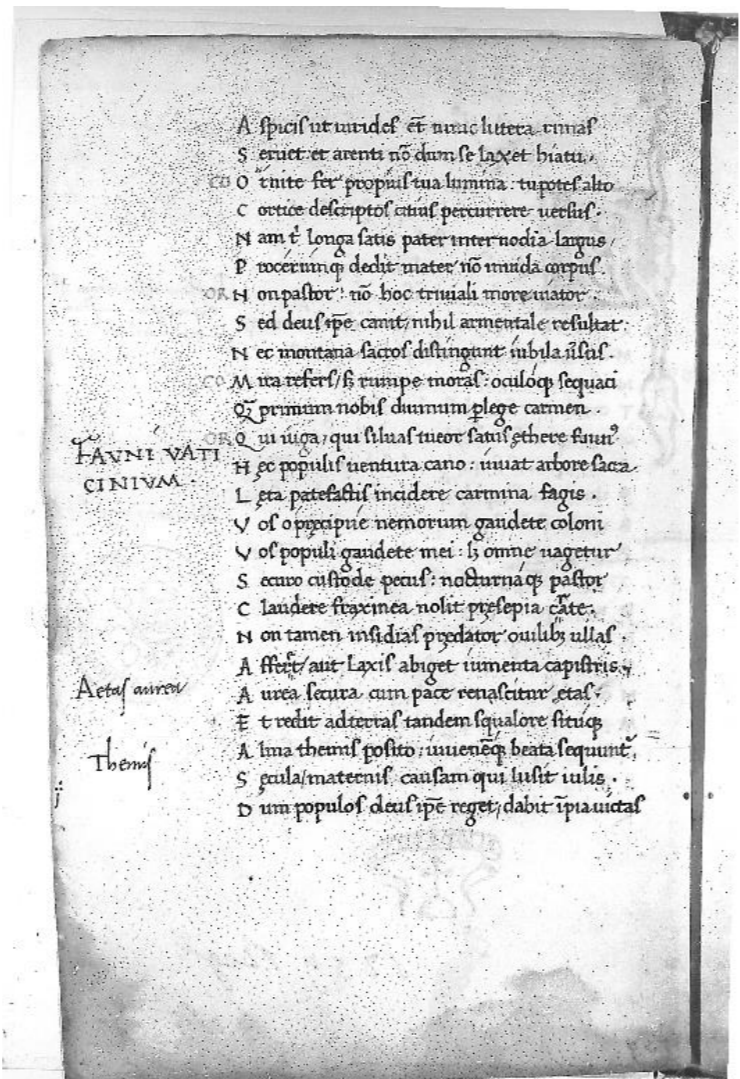 A spicis ut uirides et nunc littera rimas
S eruet et arenti nō dum se laxet hiatu.
CO O rnite fer propius tua lumina: tu potes alto
C ortice descriptos citius percurrere uersus.
N am t' longa satis pater internodia largus
P rocerumq; dedit mater nō inuida corpus.
OR N on pastor! nō hoc triuiali more uiator.
S ed deus ip̄e canit, nihil armentale resultat:
N ec montana sacros distingunt iubila uersus.
CO M ira refers, s; rumpe moras: oculoq; sequaci
Q primum nobis diuinum plege carmen.
OR Q ui iuga, qui siluas tueor satus ęthere faun'
H ęc populis uentura cano: iuuat arbore sacra
L ęta patefactis incidere carmina fagis.
V os o pręcipue nemorum gaudete coloni
V os populi gaudete mei: l; omne uagetur
S ecuro custode pecus: nocturnaq; pastor
C laudere fraxinea nolit pręsepia crate.
N on tamen insidias prędator ouilib; ullas.
A fferet, aut laxis abiget iumenta capistris.
A urea secura cum pace renascitur ętas.
E t redit ad terras tandem squalore situq;
A lma themis posito: iuueneq; beata sequunt'
S ęcula, maternis causam qui lusit iulis.
D um populos deus ip̄e reget, dabit īpia uictas
FAVNI VATI
CINIVM.
Aetas aurea
Themis